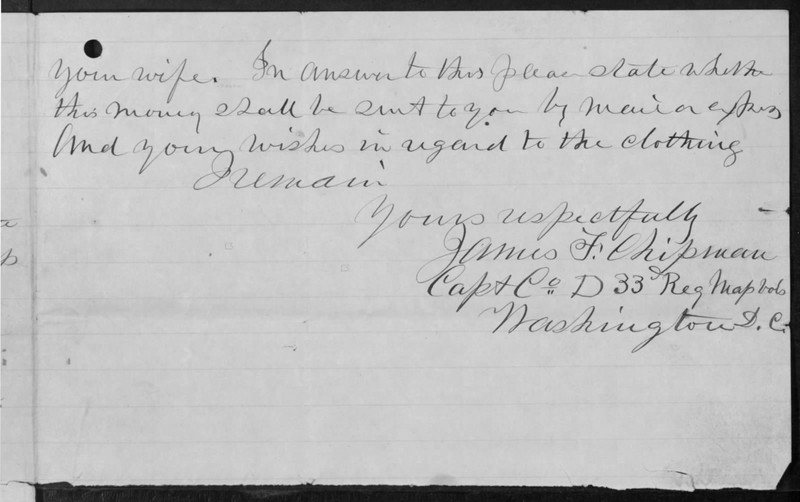 your wife. In answer to this please state whether
this money shall be sent to you by mail or express
And your wishes in regard to the clothing
I remain
Yours respectfully
James F. Chipman
Capt Co D 33d Reg Mass Vols
Washington D. C.